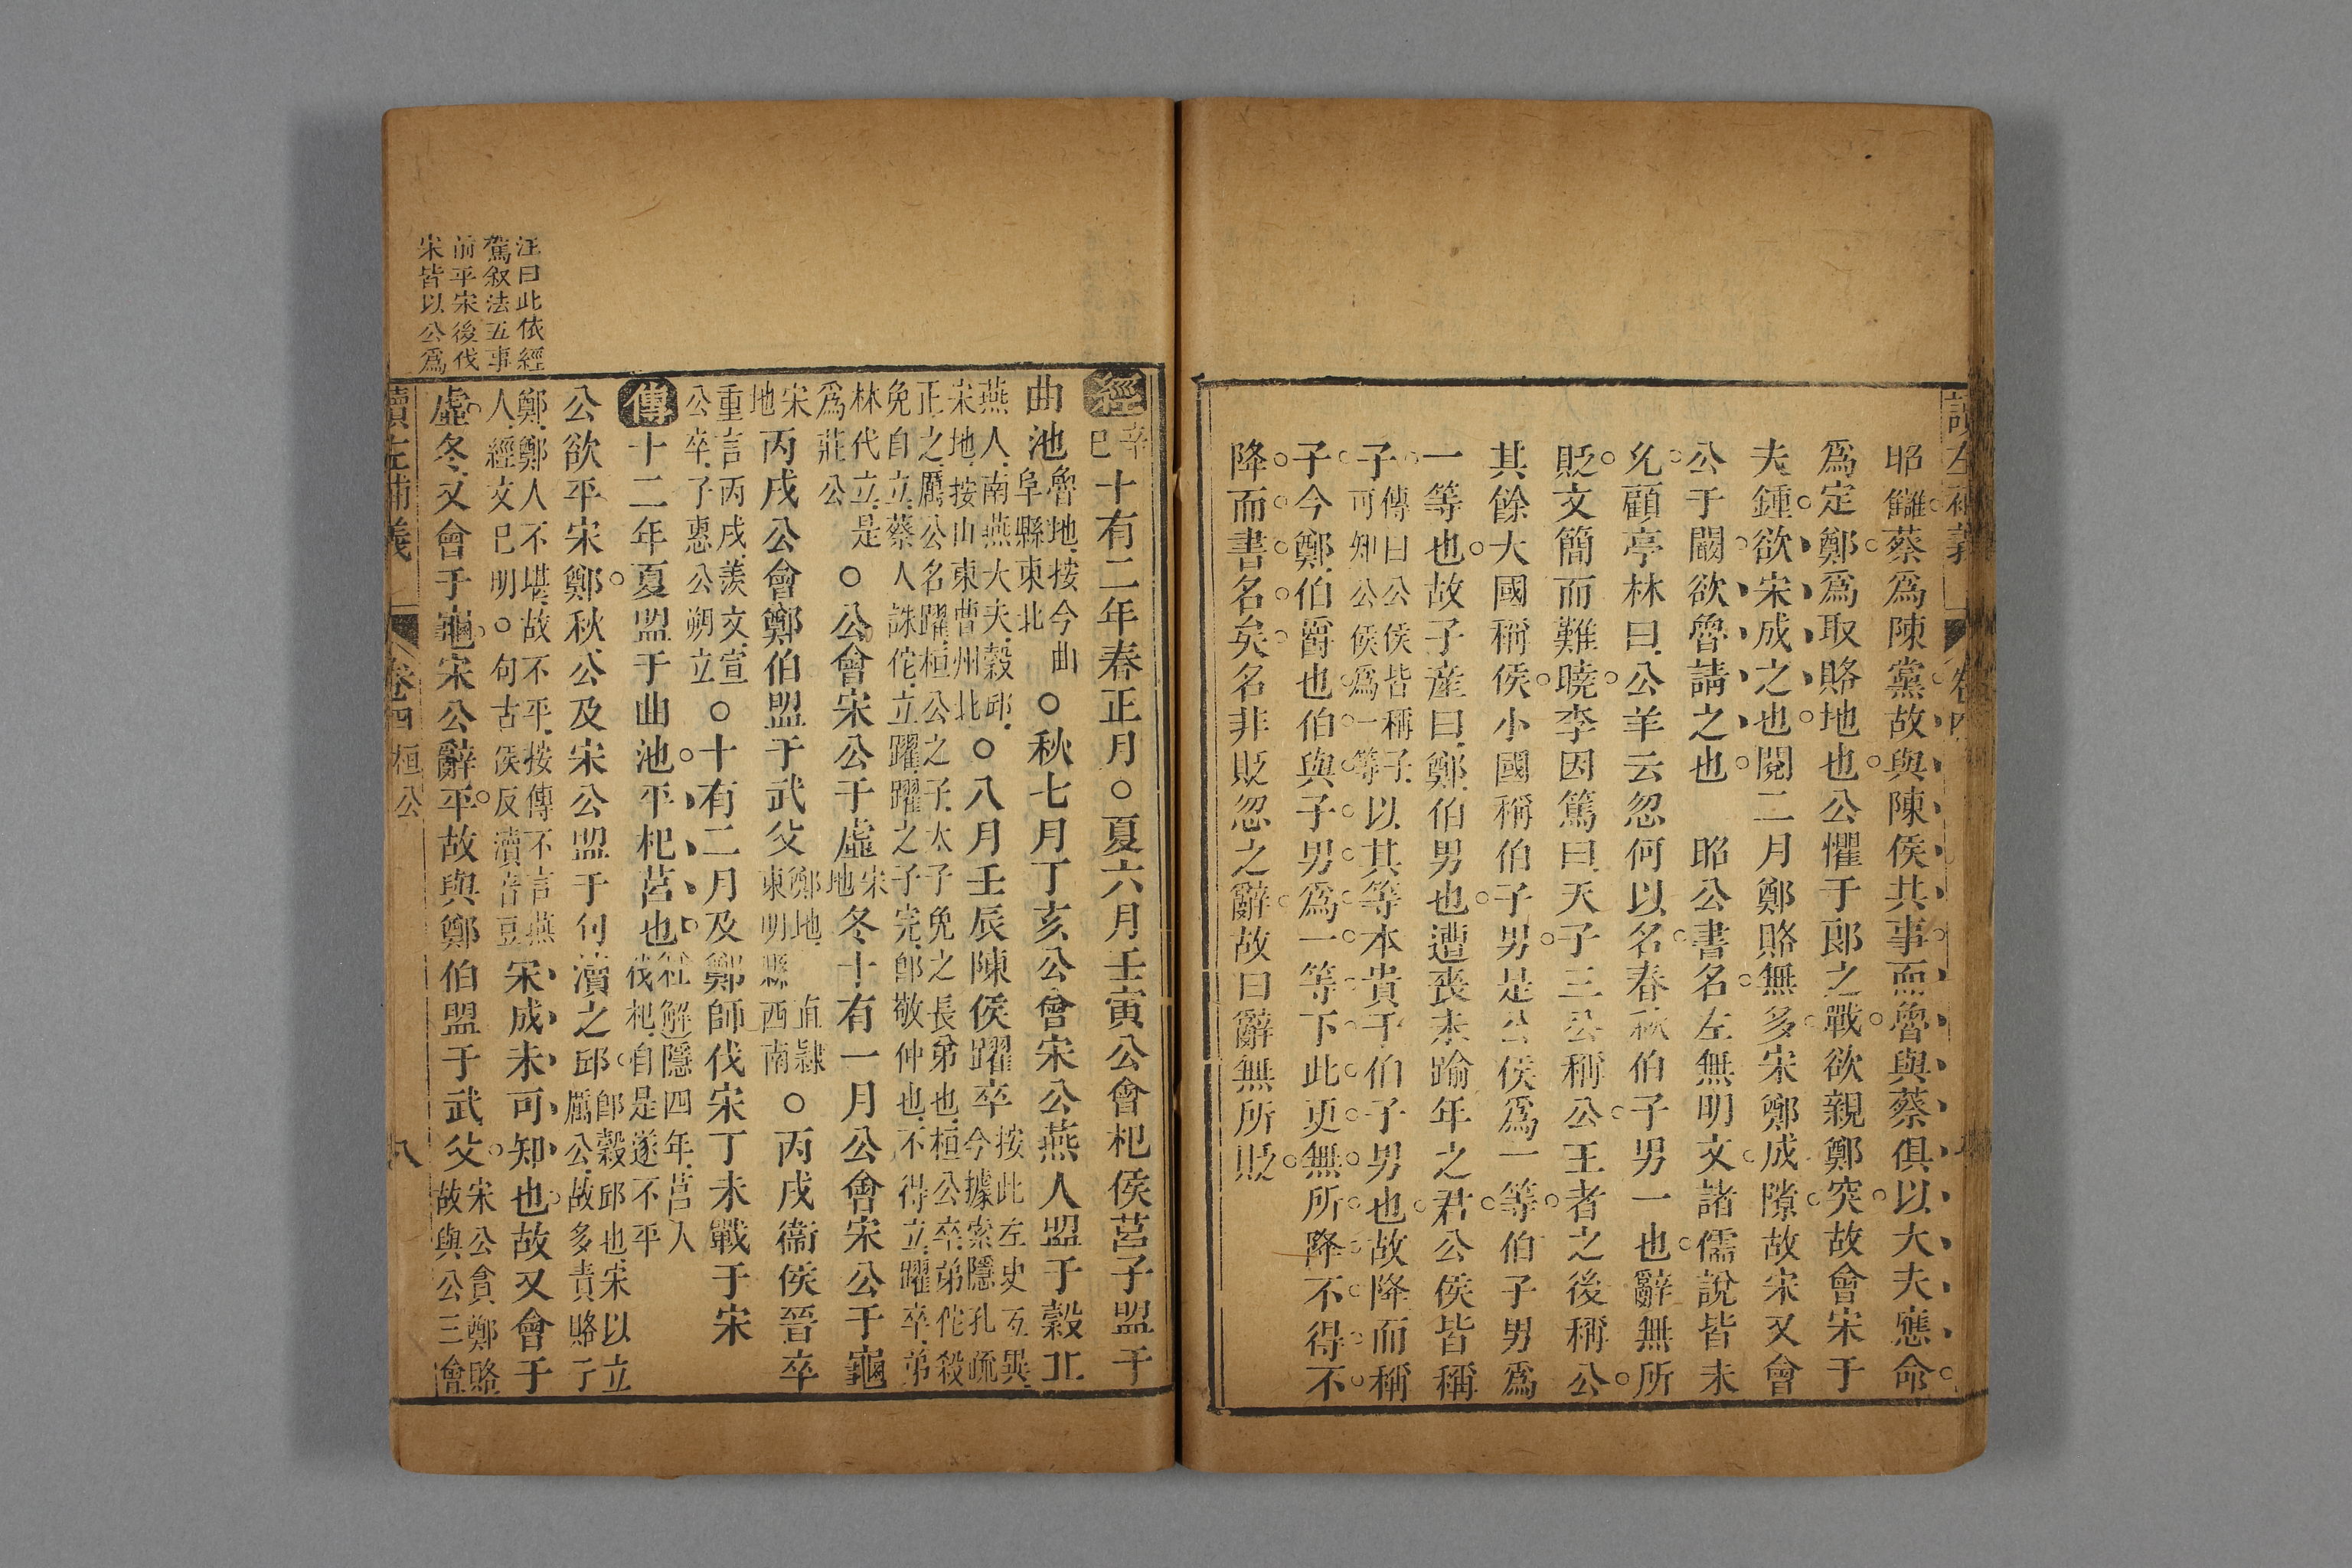 昭讎蔡爲陳黨故與陳侯共事而魯與蔡俱以大夫應命
爲定鄭爲取賂地也公懼于郎之戰欲親鄭突故會宋于
夫鍾欲宋成之也閱二月鄭賂無多宋鄭成隙故宋又會
公于闞欲魯請之也　昭公書名左無明文諸儒說皆未
允顧亭林曰公羊云忽何以名春秋伯子男一也辭無所
貶文簡而難曉李因篤曰天子三公稱公王者之後稱公
其餘大國稱侯小國稱伯子男是公侯爲一等伯子男爲
一等也故子產曰鄭伯男也遭喪未踰年之君公侯皆稱
子傳曰公侯皆稱子可知公侯爲一等以其等本貴于伯子男也故降而稱
子今鄭伯爵也伯與子男爲一等下此更無所降不得不
降而書名矣名非貶忽之辭故曰辭無所貶
經辛巳十有二年春正月○夏六月壬寅公會杞侯莒子盟于
曲池魯地按今曲阜縣東北○秋七月丁亥公會宋公燕人盟于穀丘
燕人南燕大夫穀邱宋地按山東曹州北○八月壬辰陳侯躍卒按此左史互異今據索隱孔疏
正之厲公名躍桓公之子太子免之長弟也桓公卒弟佗殺免自立蔡人誅佗立躍躍之子完卽敬仲也不得立躍卒弟
林代立是爲莊公○公會宋公于虛宋地冬十有一月公會宋公于龜
宋地丙戌公會鄭伯盟于武父鄭地直隸東明縣西南○丙戌衞侯晉卒
重言丙戌羨文宣公卒子惠公朔立○十有二月及鄭師伐宋丁未戰于宋
傳十二年夏盟于曲池平杞莒也杜解隱四年莒人伐杞自是遂不平
公欲平宋鄭秋公及宋公盟于句瀆之邱卽穀邱也宋以立厲公故多責賂于
鄭鄭人不堪故不平按傳不言燕人經文已明○句古侯反瀆音豆宋成未可知也故又會于
虛冬又會于龜宋公辭平故與鄭伯盟于武父宋公貪鄭賂故與公三會
讀左補義　卷四桓公　八
汪曰此依經
駕叙法五事
前平宋後伐
宋皆以公爲